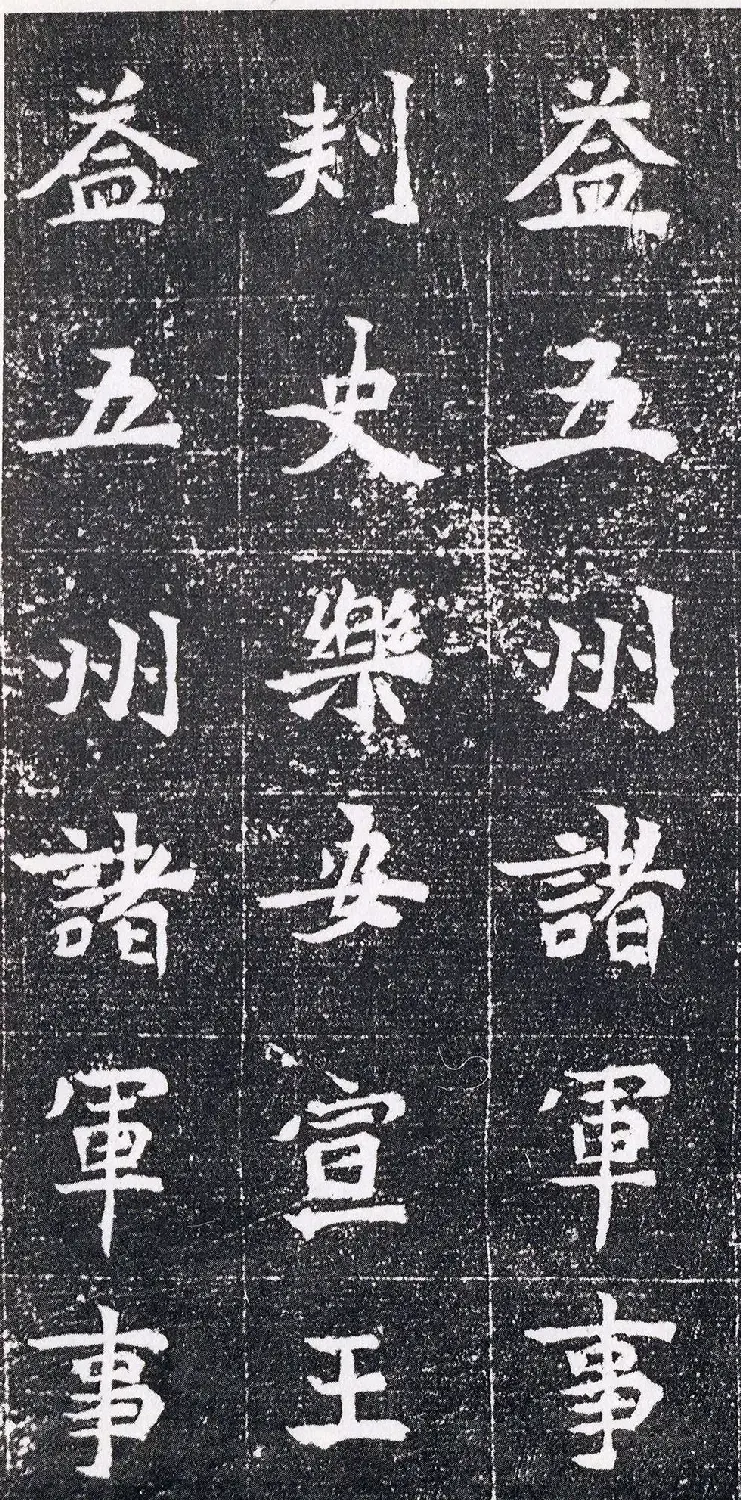 益五州諸軍事
刾史樂安宣王
益五州諸軍事